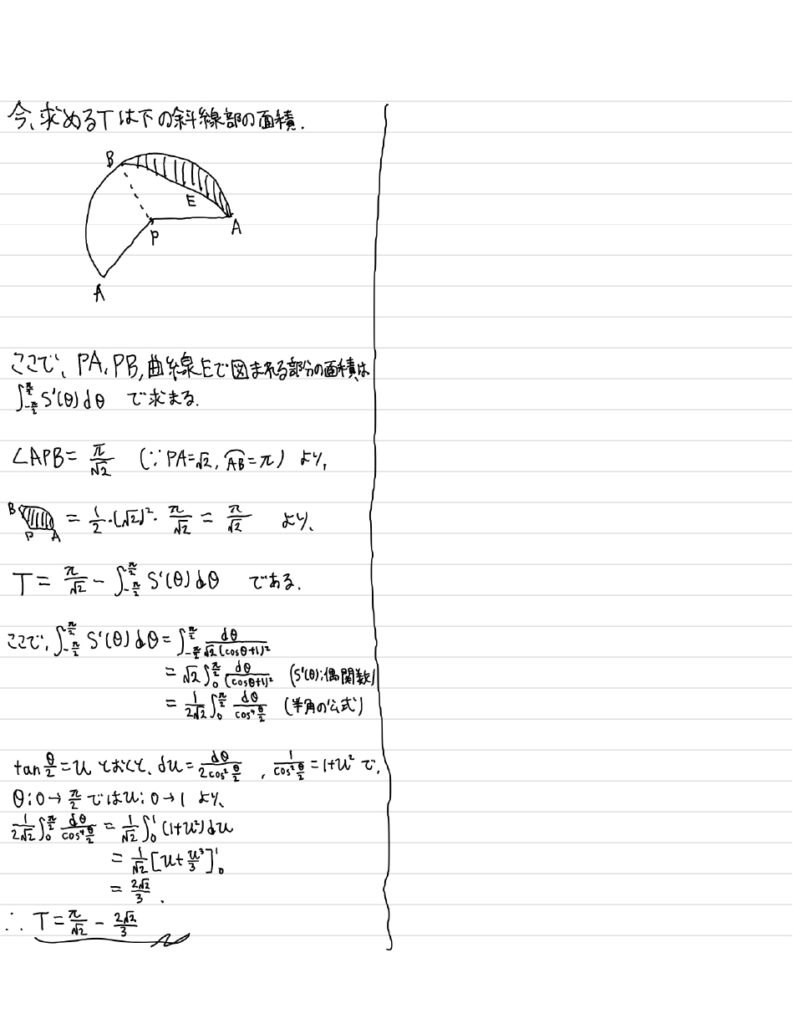 今、求めるTは下の斜線部の面積.
B
E
P
A
A
ここで、PA, PB, 曲線Eで囲まれる部分の面積は
∫_{-π/2}^{π/2} S'(θ)dθ で求まる.
∠APB = π/√2 (∵ PA=√2, A͡B=π) より,
B P A = 1/2・(√2)²・π/√2 = π/√2 より、
T = π/√2 - ∫_{-π/2}^{π/2} S'(θ)dθ である.
ここで, ∫_{-π/2}^{π/2} S'(θ)dθ = ∫_{-π/2}^{π/2} dθ/√2(cosθ+1)²
= √2 ∫_0^{π/2} dθ/(cosθ+1)² (S'(θ):偶関数)
= 1/2√2 ∫_0^{π/2} dθ/cos⁴θ/2 (半角の公式)
tan θ/2 = u とおくと、du = dθ/2cos²θ/2 , 1/cos²θ/2 = 1+u² で,
θ:0→π/2 では u:0→1 より、
1/2√2 ∫_0^{π/2} dθ/cos⁴θ/2 = 1/√2 ∫_0^1 (1+u²)du
= 1/√2 [u+u³/3]_0^1
= 2√2/3 .
∴ T = π/√2 - 2√2/3